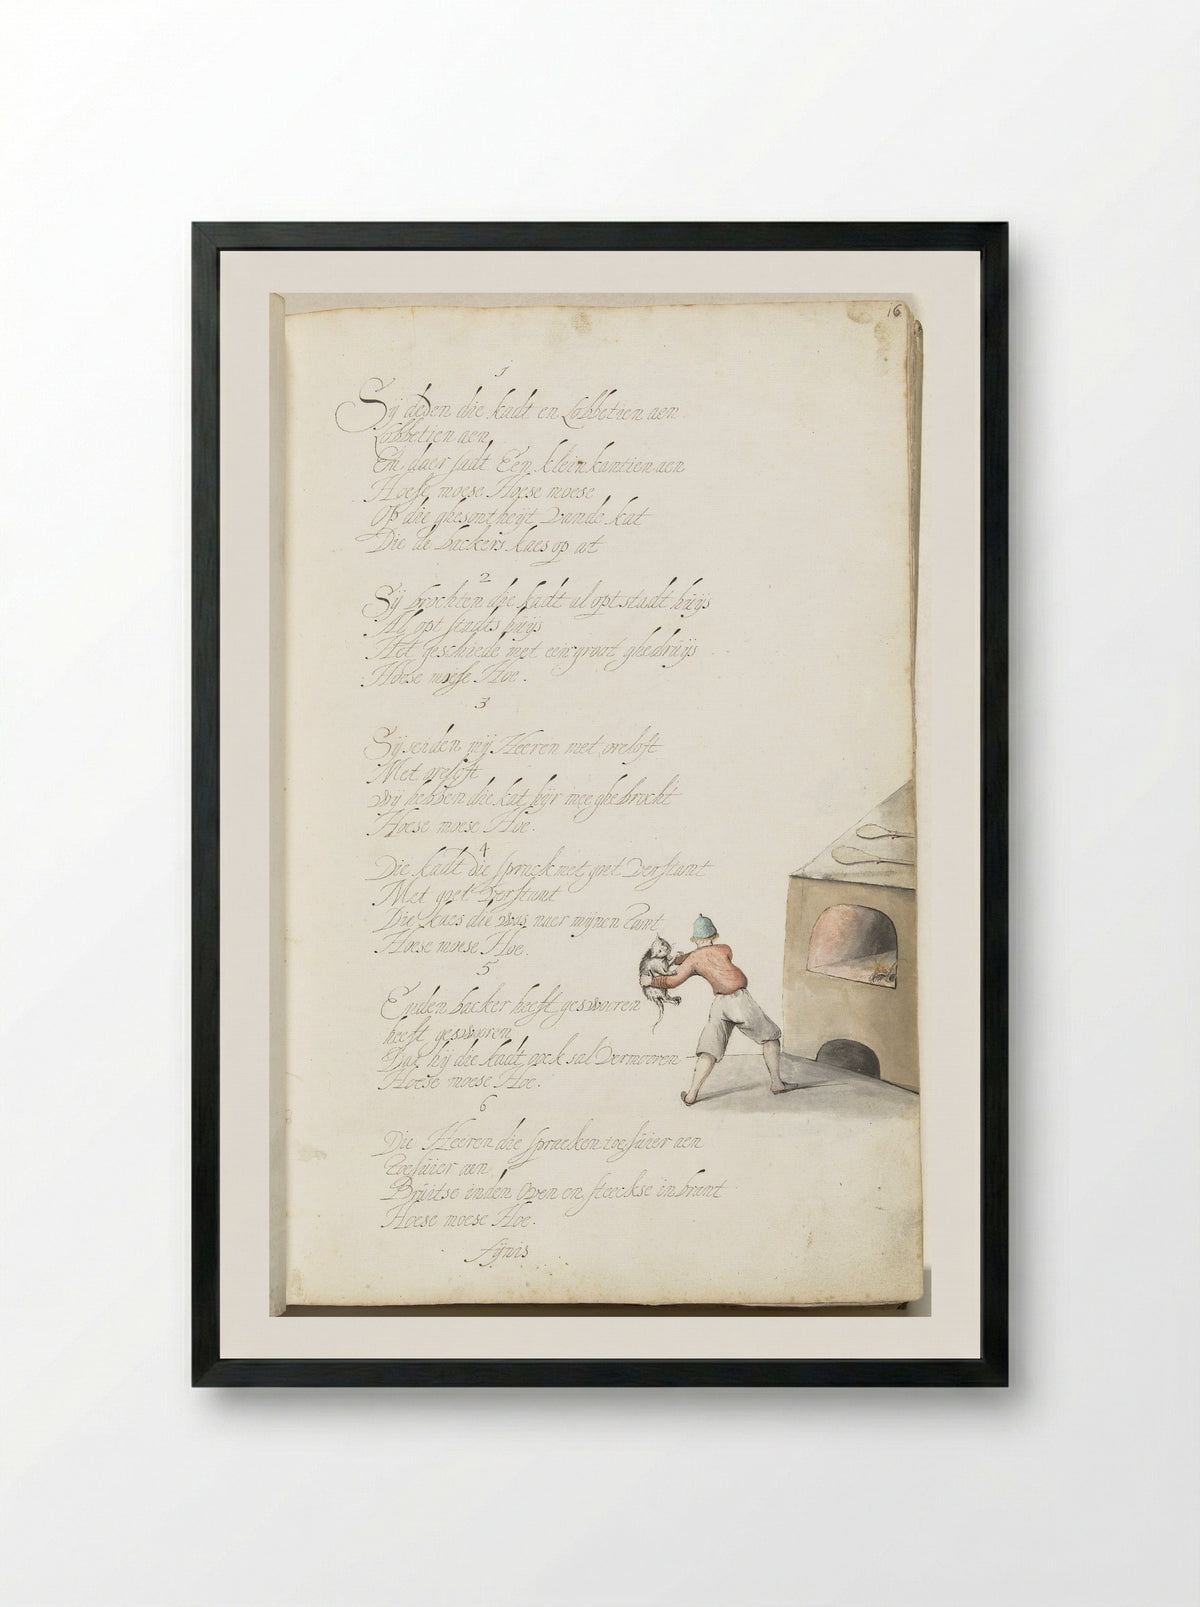 16
1
Sij deden die kadt en Lobbetien aen
Lobbetien aen
En daer sadt Een klein kantien aen
Hoese moese Hoese moese
Op die ghesontheijt vande kat
Die de backers kaes op at
2
Sij brochten die kadt al opt stadt huijs
Al opt stadts huijs
Het geschiede met een groot ghedruijs
Hoese moese Hoe.
3
Sij seiden mij Heeren met orloft
Met orloft
wij hebben die kat hijr mee ghebrocht
Hoese moese Hoe.
4
Die kadt die sprack met goet verstant
Met goet verstant
Die kaes die was naer mijnen tant
Hoese moese Hoe.
5
En den backer heeft geswooren
heeft geswooren
Dat hij die kadt oock sal vermooren
Hoese moese Hoe.
6
Die Heeren die spraeken toesuier aen
toesuier aen
Bruitse inden oven en steeckse in brant
Hoese moese Hoe.
fijnis